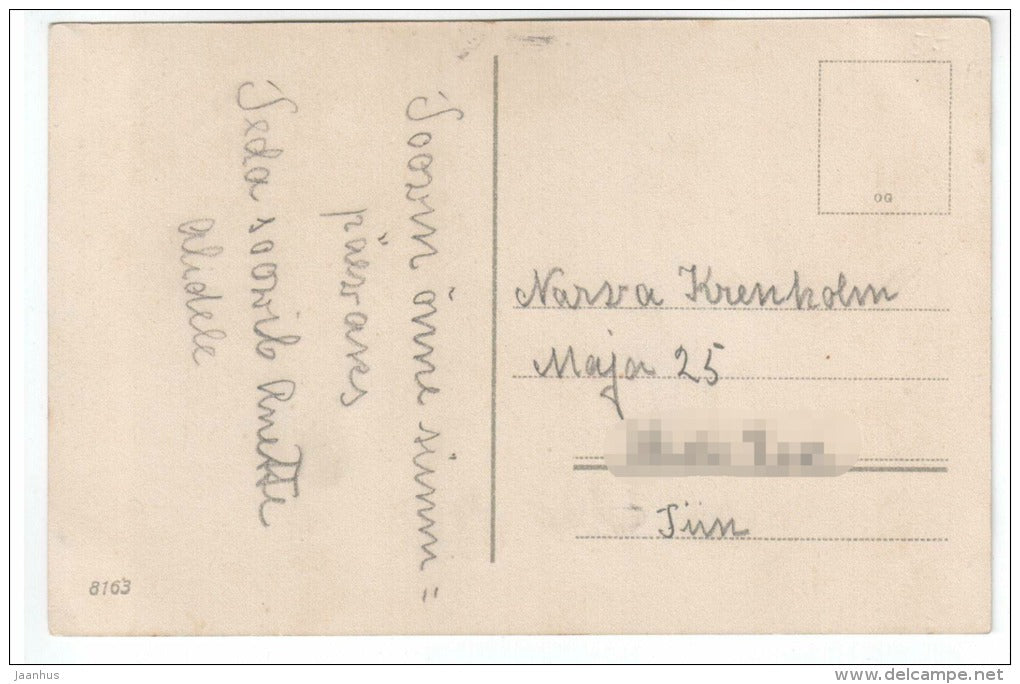 Soovin õnne sünni=
päevaks
Seda soovib Anette
Alidele
OG
Narva Krenholm
Maja 25
Siin
8163
jaanhus
www.delcampe.net